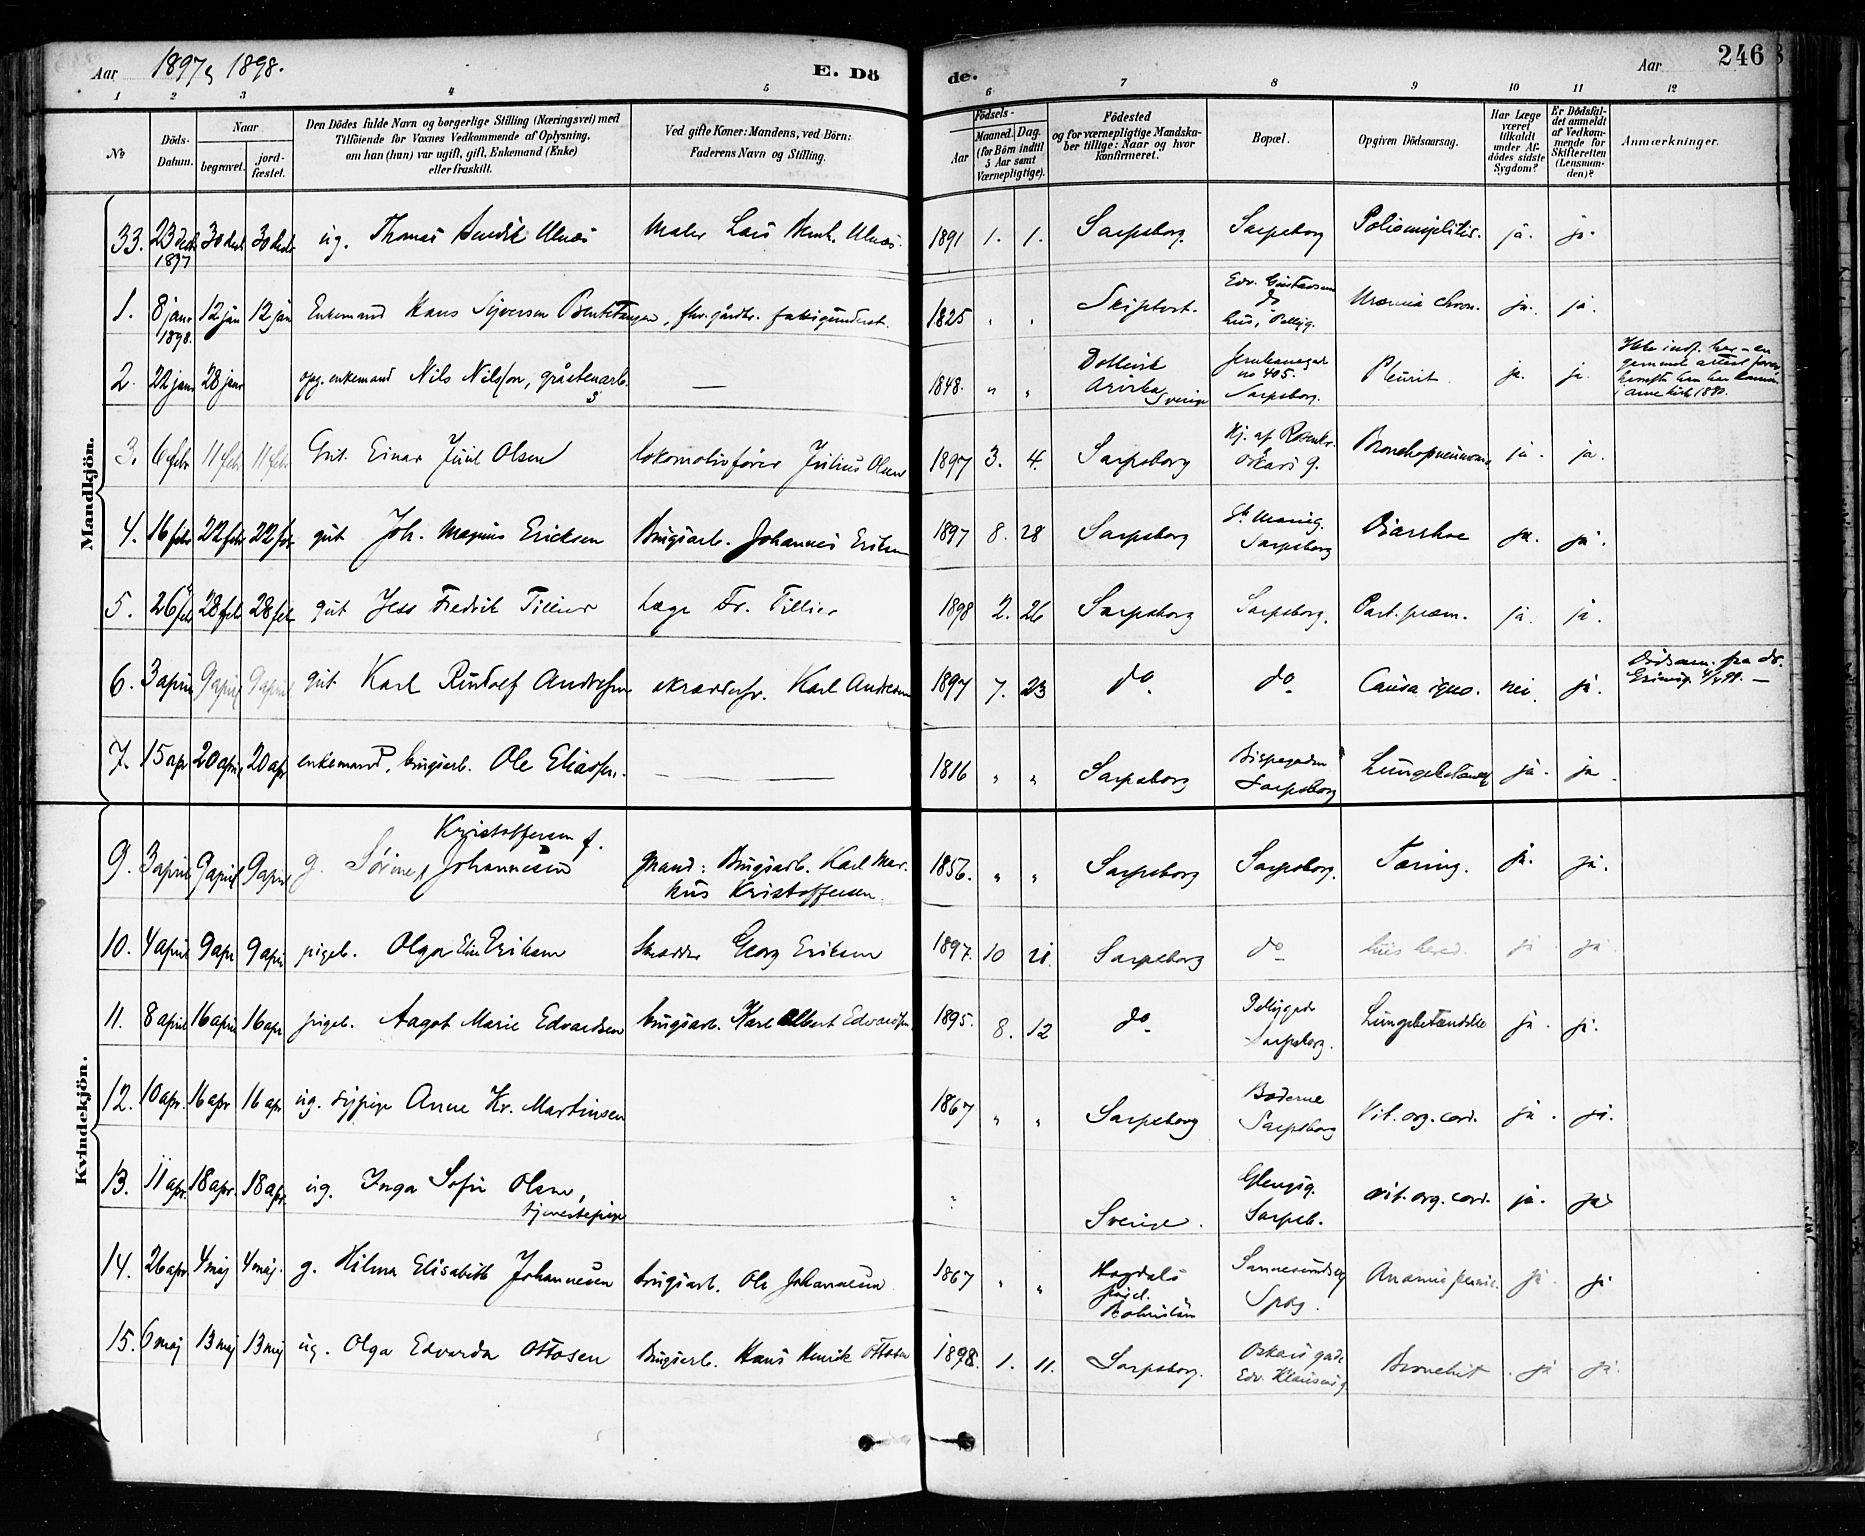 Aar 1897 & 1898. E. Dö
de. Aar 246
1 2 3 4 5 6 7 8 9 10 11 12
No Döds-Datum. Naar begravet. jord-fæstet. Den Dödes fulde Navn og borgerlige Stilling (Næringsvei) med Tilföiende for Voxnes Vedkommende af Oplysning, om han (hun) var ugift, gift, Enkemand (Enke) eller fraskilt. Ved gifte Koner: Mandens, ved Börn: Faderens Navn og Stilling. Födsels- Aar Maaned. Dag. (for Börn indtil 5 Aar samt Værnepligtige). Födested og for værnepligtige Mandskaber tillige: Naar og hvor konfirmeret. Bopæl. Opgiven Dödsaarsag. Har Læge været tilkaldt under Afdödes sidste Sygdom? Er Dödsfaldet anmeldt af Vedkommende for Skifteretten (Lensmanden)? Anmærkninger.
Mandkjön.
33. 23 decb 1897 30 decb 30 decb ug. Thomas Maler Lars 1891 1. 1. Sarpsborg. Sarpsborg ja. ja.
1. 8 janr 1898. 12 jan 12 jan Enkemand Hans Syversen 1825 " " Skiptvet. Edv. Gustavsens do hus, Uræmia chron. ja. ja.
2. 22 janr 28 janr opg. enkemand Nils Nilsson, — 1848. " " Arvika Sverige no 405. Sarpsborg. Pleurit. ja. ja.
3. 6 febr 11 febr 11 febr Gut. Einar Juul Olsen lokomotivfører Julius Olsen 1897 3. 4. Sarpsborg Oskars g. Bronchopneumoni ja. ja.
4. 16 febr 22 febr 22 febr gut Joh. Magnus Ericksen Brugsarb. Johannes Eriksen 1897 8. 28 Sarpsborg Sarpsborg Diarrhoe ja. ja.
5. 26 feb 28 feb 28 feb gut Jess Fredrik Tillier Læge Fr. Tillier 1898 2. 26 Sarpsborg Sarpsborg. Part. præm. ja. ja.
6. 3 april 9 april 9 april gut Karl Rudolf Andresen skrædder. Karl Andresen 1897 7. 23 do do Causa igno. nei. ja.
7. 15 apr 20 apr. 20 apr enkemand, brugsarb. Ole Eliassen. — 1816 " " Sarpsborg Bispegaden Sarpsborg Lungebetændelse ja. ja.
Kvindekjön.
9. 3 april 9 april 9 april g. Sørine Kristoffersen f. Johannesen Mand: Brugsarb. Karl Markus Kristoffersen. 1856. " " Sarpsborg Sarpsborg. Tæring. ja. ja.
10. 4 april 9 apr 9 april pigeb. Olga Eline Eriksen Skrædder Georg Eriksen 1897. 10 21. Sarpsborg do lues hered. ja. ja.
11. 8 april 16 april 16 apr. pigeb. Aagot Marie Edvardsen brugsarb. Karl Albert Edvardsen 1895. 8. 12 do Sarpsborg. Lungebetændelse ja. ja.
12. 10 apr. 16 apr 16 apr ug. sypige Anne Kr. Martinsen 1867 " " Sarpsborg Boderne Sarpsborg Vit. org. cord. ja. ja.
13. 11 apr. 18 apr. 18 apr. ug. Inga Sofie Olsen, tjenestepige " Sverige. Glengsg. Sarpsb. vit. org. cord. ja. ja
14. 26 apr. 4 maj 4 maj. g. Hilma Elisabeth Johannesen brugsarb. Ole Johannesen 1867 " " Bohuslän Sannesundsv Spbg. Anæmia pernic. ja. ja
15. 6 maj 13 maj 13 maj ug. Olga Edvarda Ottosen Brugsarb. Hans Henrik Ottosen 1898. 1. 11. Sarpsborg. Oskars gade Edv. Klausens g. Bronchit ja ja.